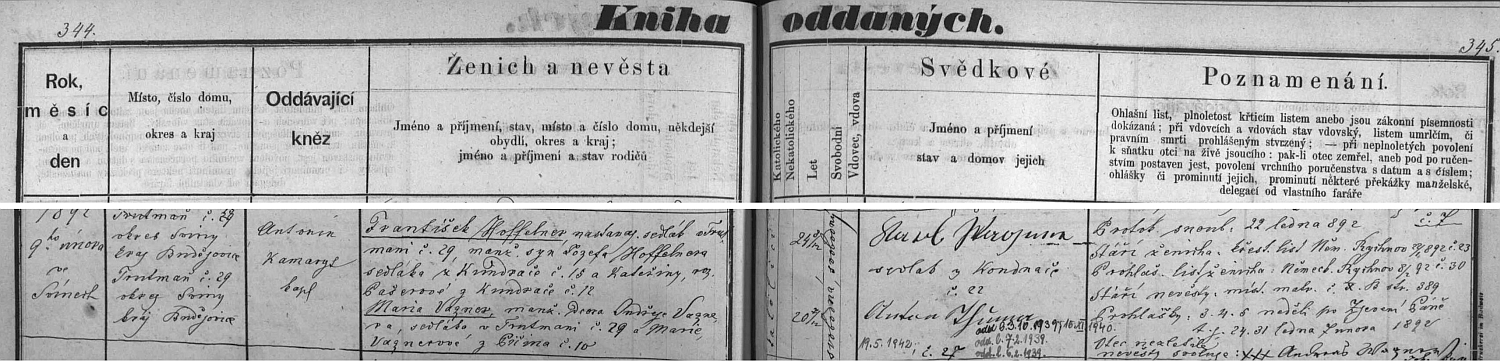 344.
Kniha oddaných.
345.
Rok, měsíc a den
Místo, číslo domu, okres a kraj
Oddávající kněz
Ženich a nevěsta
Jméno a příjmení, stav, místo a číslo domu, někdejší
obydlí, okres a kraj;
jméno a příjmení a stav rodičů
Katolického
Nekatolického
Let
Svobodní
Vdovec, vdova
Svědkové
Jméno a příjmení
stav a domov jejich
Poznamenání.
Ohlašní list, plnoletost křticím listem anebo jsou zákonní písemnosti
dokázaná; při vdovcích a vdovách stav vdovský, listem umrlčím, či
pravním smrti prohlášeným stvrzený; — při neplnoletých povolení
k sňatku otci na živě jsoucího: pak-li otec zemřel, aneb pod poručen-
stvím postaven jest, povolení vrchního poručenstva s datum a s číslem;
ohlášky či prominutí jejich, prominutí některé překážky manželské,
delegací od vlastního faráře
1892
9ho února
ve
Trutmaň č. 29
okres Sviny
kraj Budějovice
Trutmaň č. 29
okres Sviny
kraj Budějovice
Antonín
Kamaryt
kapl
František Hoffelner nastávaj. sedlák v Trut-
mani č. 29, manž. syn Josefa Hoffelnera
sedláka z Kundrače č. 15 a Kateřiny, roz.
z Kundrače č. 12
Maria Vagner, manž. dcera Ondřeje Vagne-
ra, sedláka v Trutmani č. 29 a Marie
Vagnerové z č. 10
24
20
svobodný
svobodná
Karl
sedlák z Kondrač
č. 22
Anton
19.5.1942
č. 27
odd. č. 3.10.1939
odd. č. 7.2.1939.
odd. č. 6.2.1939.
Protok. snoub. 22 ledna 892 č. 7
Stáří ženicha: křest. list Něm. Rychnov 892 č. 23
Prohláš. list ženicha: Německ. Rychnov 892 č. 30
Stáří nevěsty: místní matr. č. str. 389
Prohlášky: 3. 4. 5 neděli po Zjevení Páně
t. j. 24. 31 ledna 7 února 1892
Otec nezletilé
nevěsty svoluje: ××× Andreas Wagner